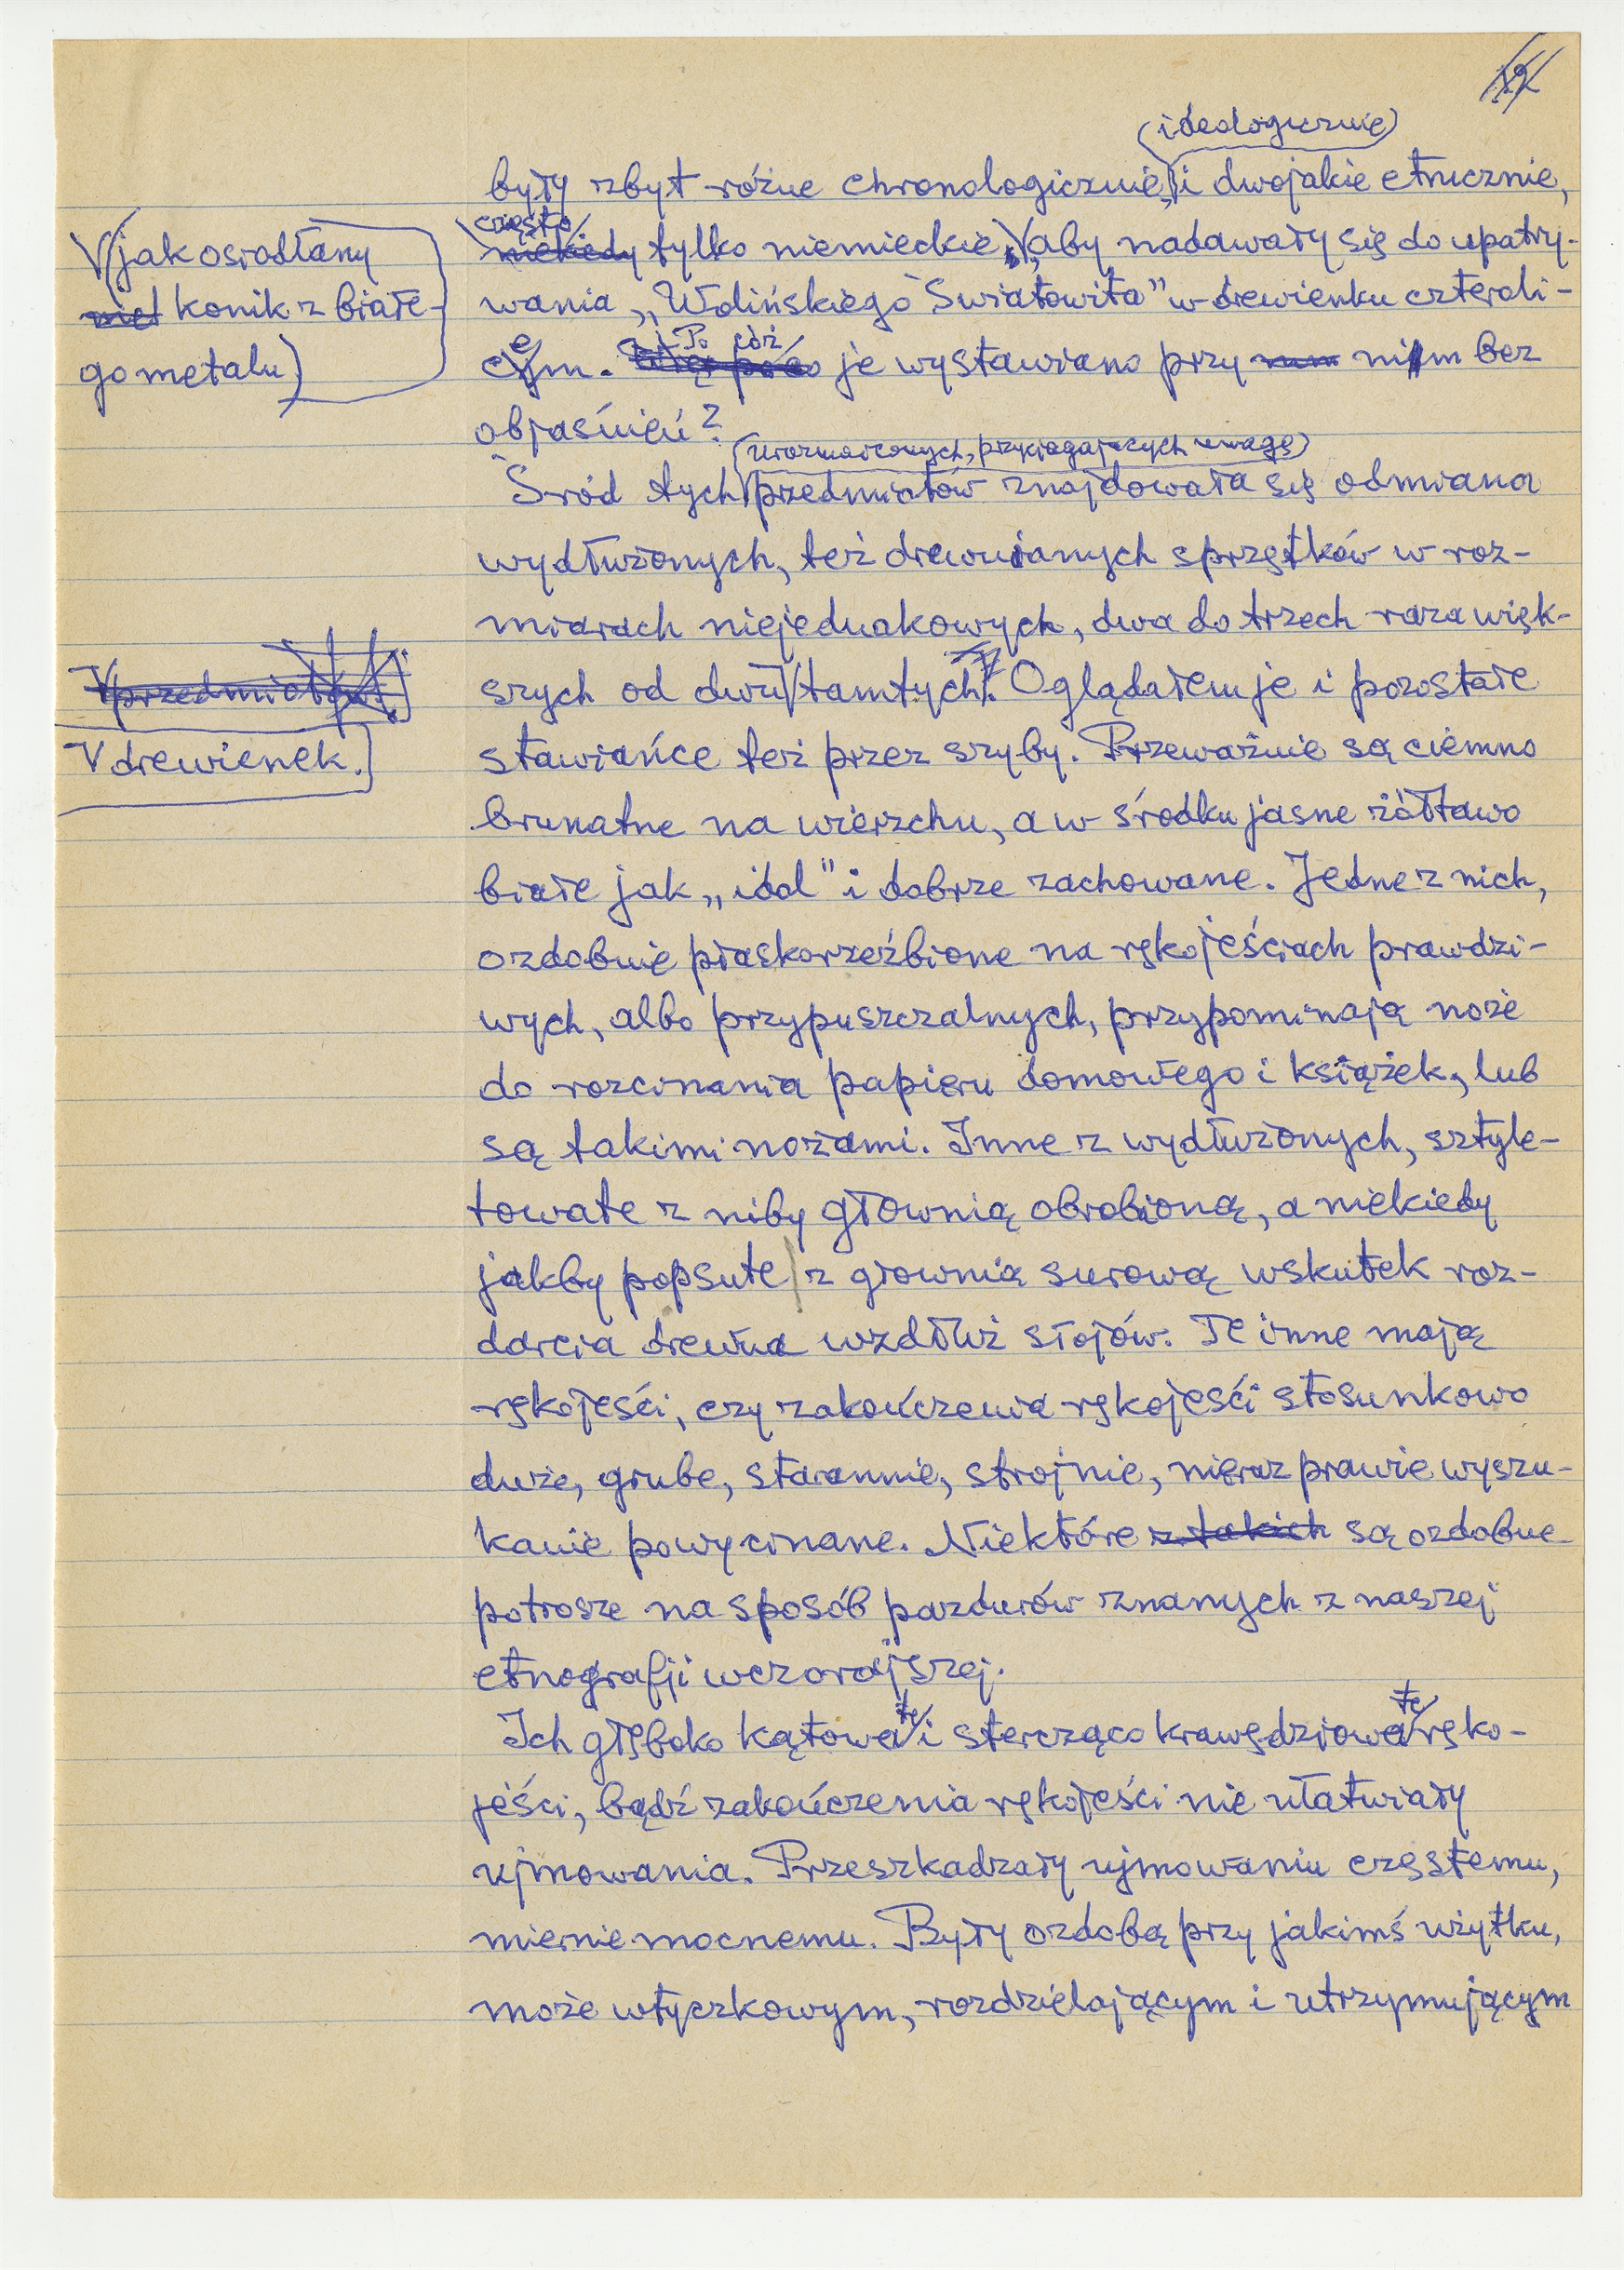 (ideologicznie)
były zbyt różne chronologicznie, i dwojakie etnicznie,
często
niekiedy tylko niemieckie, aby nadawały się do upatry-
(jak osiodłany
konik z białe-
go metalu)
wania „Wolińskiego Światowita” w drewienku czteroli-
cem. Po cóż je wystawiano przy nim bez
objaśnień?
(urozmaiconych, przyciągających uwagę)
Śród tych przedmiotów znajdowała się odmiana
wydłużonych, też drewnianych sprzętków w roz-
miarach niejednakowych, dwa do trzech raza więk-
przedmiotów
szych od dwu tamtych. Oglądałem je i pozostałe
V drewienek.
stawiańce też przez szyby. Przeważnie są ciemno
brunatne na wierzchu, a w środku jasne żółtawo
białe jak „idol” i dobrze zachowane. Jedne z nich,
ozdobnie płaskorzeźbione na rękojeściach prawdzi-
wych, albo przypuszczalnych, przypominają noże
do rozcinania papieru domowego i książek, lub
są takimi nożami. Inne z wydłużonych, sztyle-
towate z niby głownią obrobioną, a niekiedy
jakby popsute z głownią surową wskutek roz-
darcia drewna wzdłuż słojów. Te inne mają
rękojeści, czy zakończenia rękojeści stosunkowo
duże, grube, starannie, strojnie, nieraz prawie wyszu-
kanie powycinane. Niektóre z takich są ozdobne
potrosze na sposób pazdurów znanych z naszej
etnografji wczorajszej.
Ich głęboko kątowate i stercząco krawędziowate ręko-
jeści, bądź zakończenia rękojeści nie ułatwiały
ujmowania. Przeszkadzały ujmowaniu częstemu,
miernie mocnemu. Były ozdobą przy jakimś użytku,
może wtyczkowym, rozdzielającym i utrzymującym